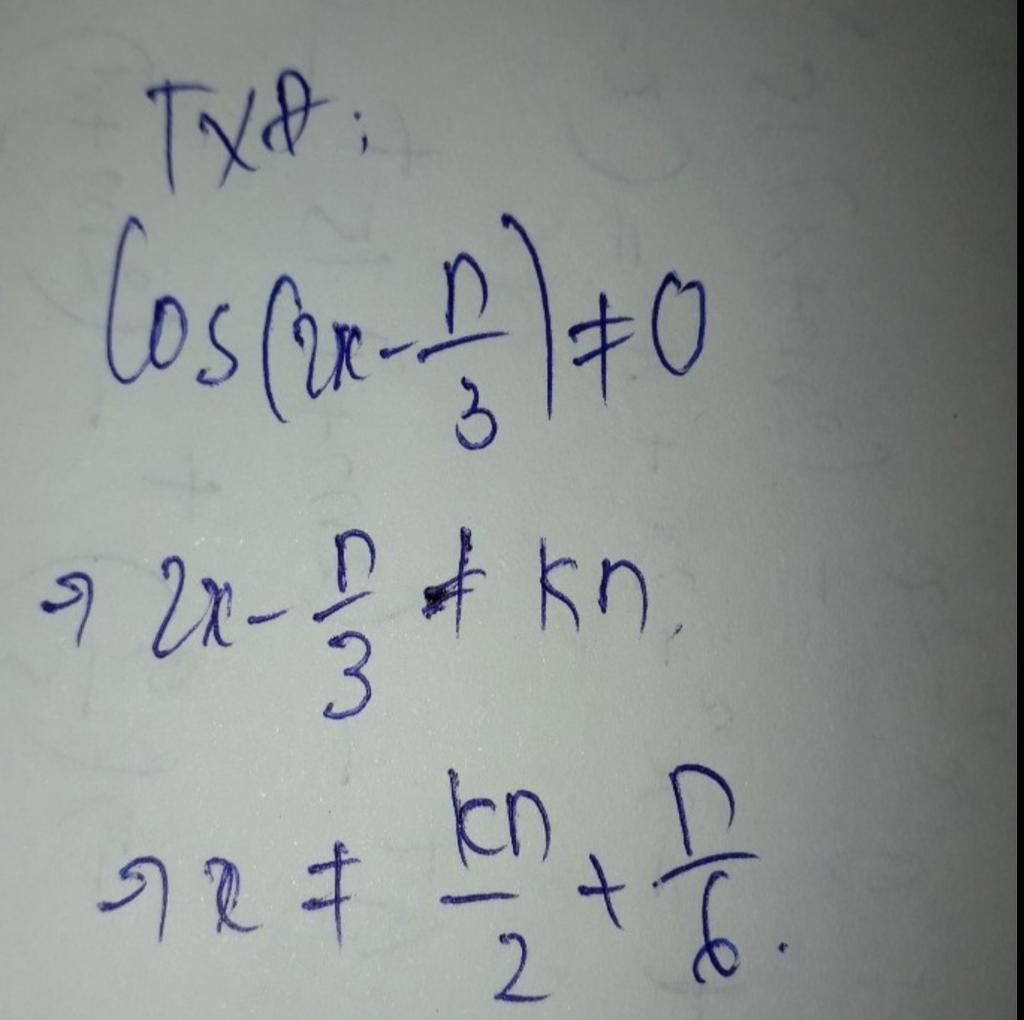 TXĐ:
Cos(2x - π/3) ≠ 0
⇒ 2x - π/3 ≠ kπ.
⇒ x ≠ kπ/2 + π/6.